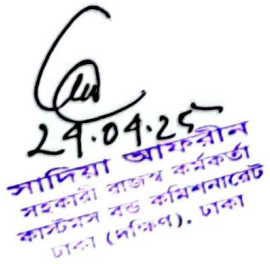 29.04.25
সাদিয়া আফরীন
সহকারী রাজস্ব কর্মকর্তা
কাস্টমস বন্ড কমিশনারেট
ঢাকা (দক্ষিণ), ঢাকা